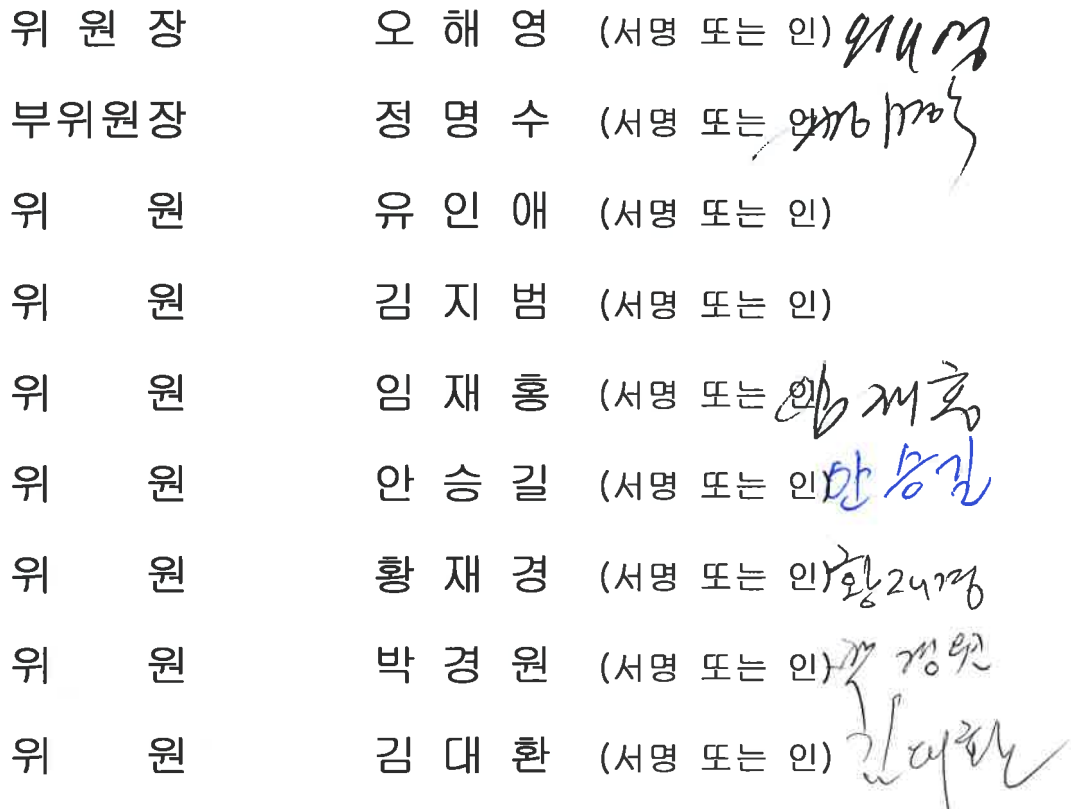 위 원 장 오 해 영 (서명 또는 인) 오해영
부위원장 정 명 수 (서명 또는 인) 정명수
위 원 유 인 애 (서명 또는 인)
위 원 김 지 범 (서명 또는 인)
위 원 임 재 홍 (서명 또는 인) 임재홍
위 원 안 승 길 (서명 또는 인) 안승길
위 원 황 재 경 (서명 또는 인) 황재경
위 원 박 경 원 (서명 또는 인) 박경원
위 원 김 대 환 (서명 또는 인) 김대환